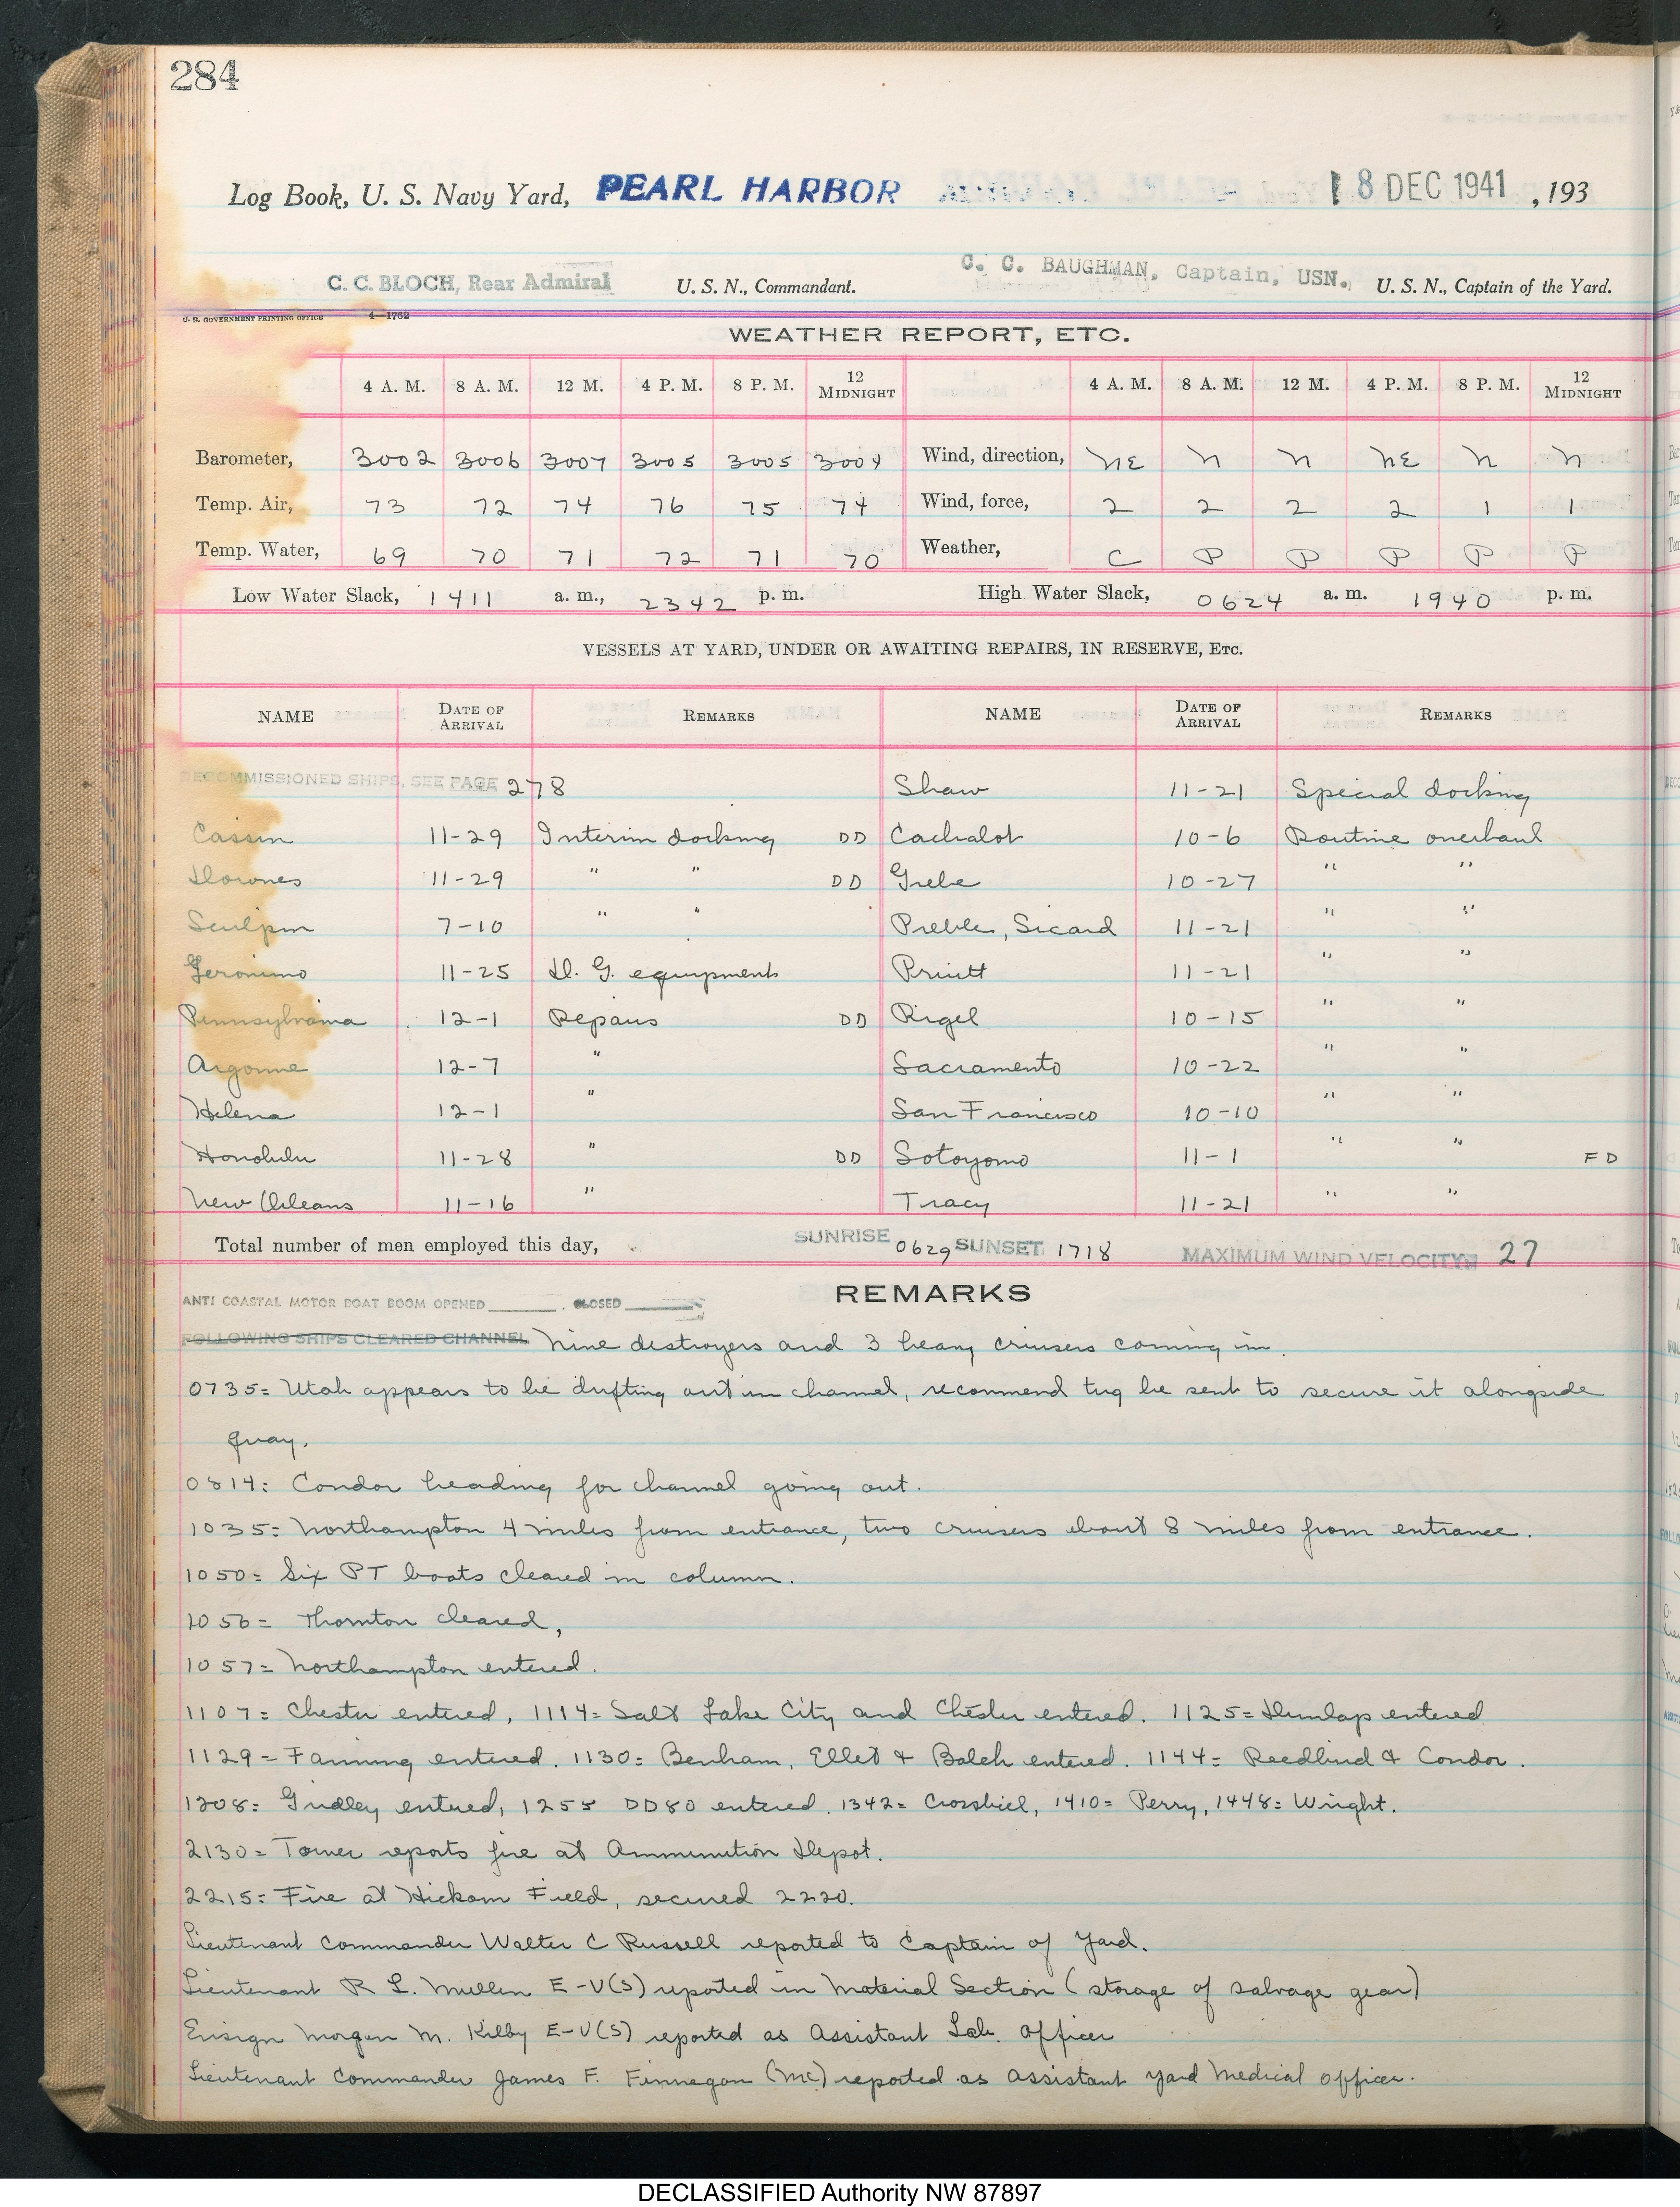 284
Log Book, U. S. Navy Yard, PEARL HARBOR 8 DEC 1941, 193
C. C. BLOCH, Rear Admiral U. S. N., Commandant. C. C. BAUGHMAN, Captain, USN. U. S. N., Captain of the Yard.
U. S. GOVERNMENT PRINTING OFFICE 4—1762
WEATHER REPORT, ETC.
4 A. M. 8 A. M. 12 M. 4 P. M. 8 P. M. 12 MIDNIGHT 4 A. M. 8 A. M. 12 M. 4 P. M. 8 P. M. 12 MIDNIGHT
Barometer, 3002 3006 3007 3005 3005 3004 Wind, direction, NE N N NE N N
Temp. Air, 73 72 74 76 75 74 Wind, force, 2 2 2 2 1 1
Temp. Water, 69 70 71 72 71 70 Weather, C P P P P P
Low Water Slack, 1411 a. m., 2342 p. m. High Water Slack, 0624 a. m. 1940 p. m.
VESSELS AT YARD, UNDER OR AWAITING REPAIRS, IN RESERVE, ETC.
NAME DATE OF ARRIVAL REMARKS NAME DATE OF ARRIVAL REMARKS
DECOMMISSIONED SHIPS, SEE PAGE 278 Shaw 11-21 Special docking
Cassin 11-29 Interim docking DD Cachalot 10-6 Routine overhaul
Downes 11-29 " " DD Grebe 10-27 " "
Sculpin 7-10 " " Preble, Sicard 11-21 " "
Geronimo 11-25 D. G. equipment Pruitt 11-21 " "
Pennsylvania 12-1 Repairs DD Rigel 10-15 " "
Argonne 12-7 " Sacramento 10-22 " "
Helena 12-1 " San Francisco 10-10 " "
Honolulu 11-28 " DD Sotoyomo 11-1 " " FD
New Orleans 11-16 " Tracy 11-21 " "
Total number of men employed this day, SUNRISE 0629 SUNSET 1718 MAXIMUM WIND VELOCITY 27
REMARKS
ANTI COASTAL MOTOR BOAT BOOM OPENED CLOSED
FOLLOWING SHIPS CLEARED CHANNEL Nine destroyers and 3 heavy cruisers coming in.
0735= Utah appears to be drifting out in channel, recommend tug be sent to secure it alongside
quay.
0814: Condor heading for channel going out.
1035= Northampton 4 miles from entrance, two cruisers about 8 miles from entrance.
1050= Six PT boats cleared in column.
1056= Thornton cleared,
1057= Northampton entered.
1107= Chester entered, 1114= Salt Lake City and Chester entered. 1125= Dunlap entered
1129= Fanning entered. 1130= Benham, Ellet & Balch entered. 1144= Reedbird & Condor.
1208= Gridley entered, 1255 DD80 entered. 1342= Crossbill, 1410= Perry, 1448= Wright.
2130= Tower reports fire at Ammunition Depot.
2215= Fire at Hickam Field, secured 2220.
Lieutenant Commander Walter C Russell reported to Captain of Yard.
Lieutenant R L. Mullen E-V(S) reported in Material Section (storage of salvage gear)
Ensign Morgan M. Kilby E-V(S) reported as Assistant Lab. Officer
Lieutenant Commander James F. Finnegan (MC) reported as Assistant Yard Medical Officer.
DECLASSIFIED Authority NW 87897